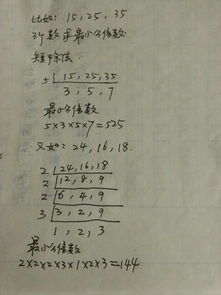 比如: 15, 25, 35
3个数求最小公倍数
短除法
5 15, 25, 35
3, 5, 7
最小公倍数
5×3×5×7=525
又如: 24, 16, 18.
2 24, 16, 18
2 12, 8, 9
2 6, 4, 9
3 3, 2, 9
1, 2, 3
最小公倍数
2×2×2×3×1×2×3=144